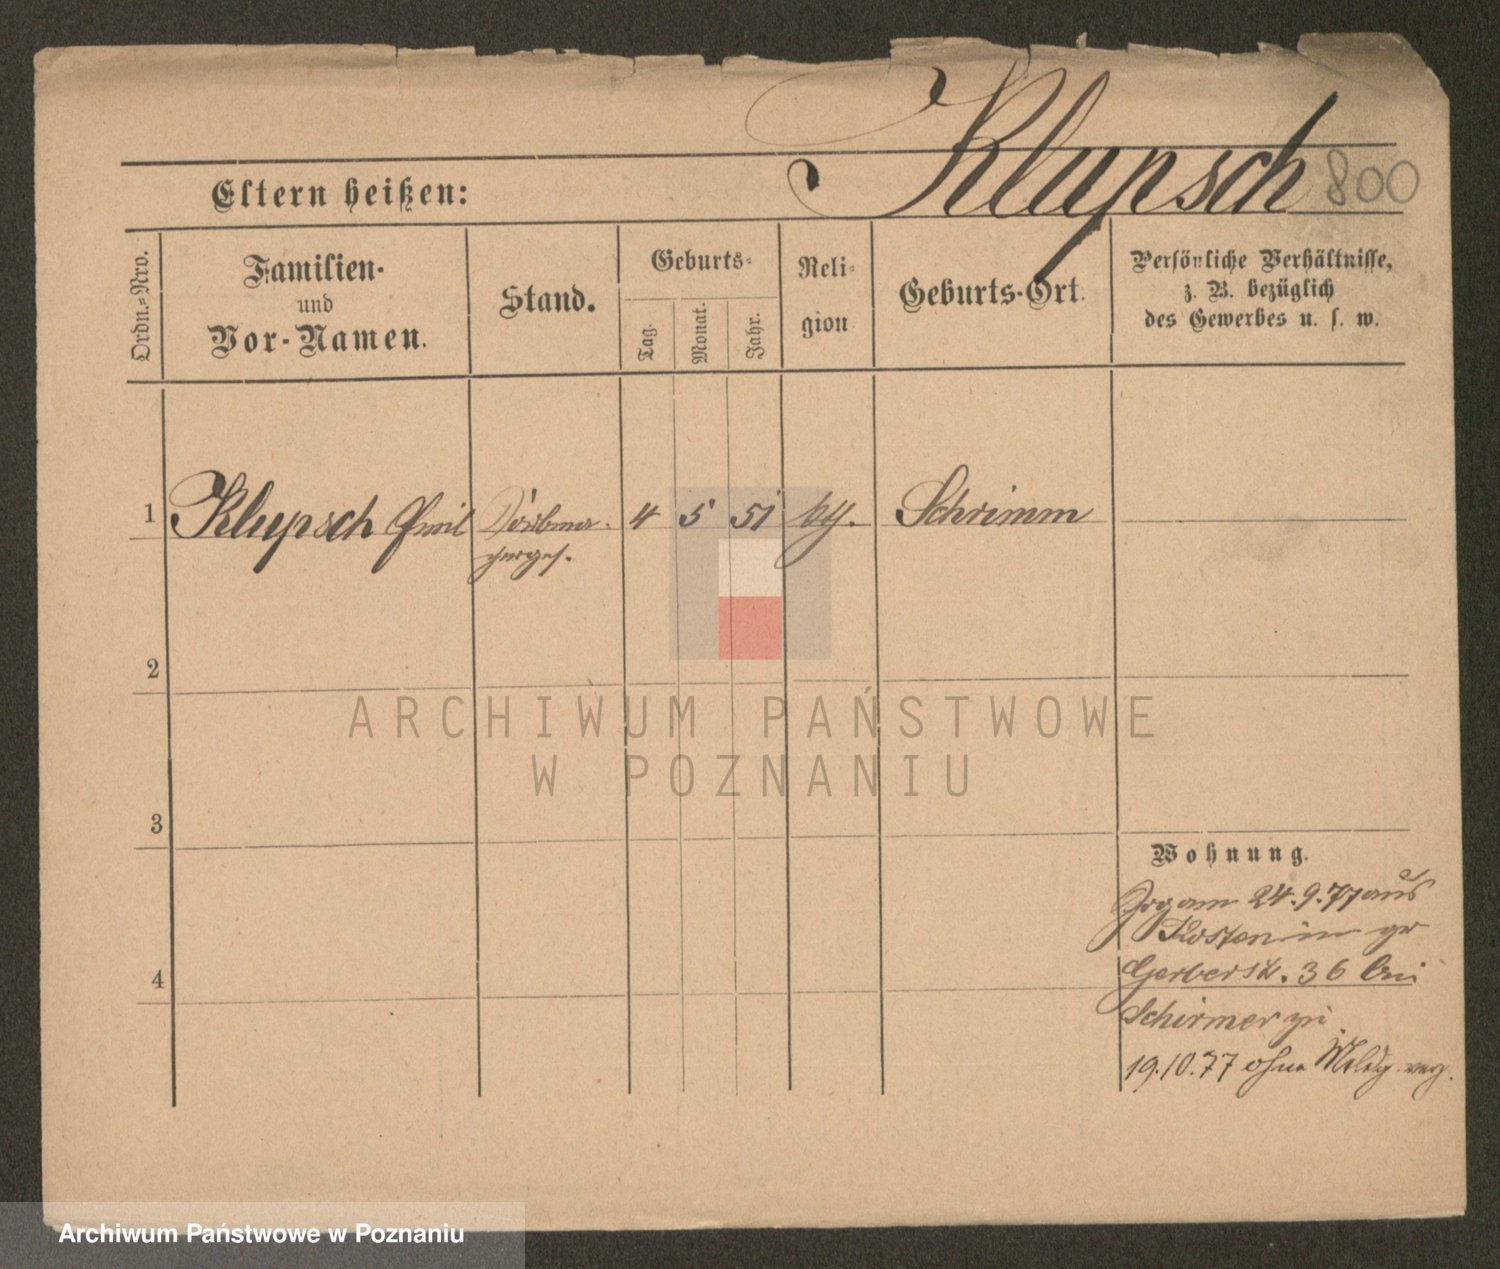 Klupsch 800
Eltern heißen:
Ordn.=Nro.
Familien-
und
Vor-Namen.
Stand.
Geburts-
Tag.
Monat.
Jahr.
Reli-
gion
Geburts-Ort.
Persönliche Verhältnisse,
z. B. bezüglich
des Gewerbes u. s. w.
1 Klupsch Emil 4 5 51 Schrimm
2
3
4
Wohnung.
24.9.77 aus
Kosten in gr
Gerberstr. 36 bei
Schirmer zu
19.10.77 ohne Meldg. verz.
ARCHIWUM PAŃSTWOWE
W POZNANIU
Archiwum Państwowe w Poznaniu